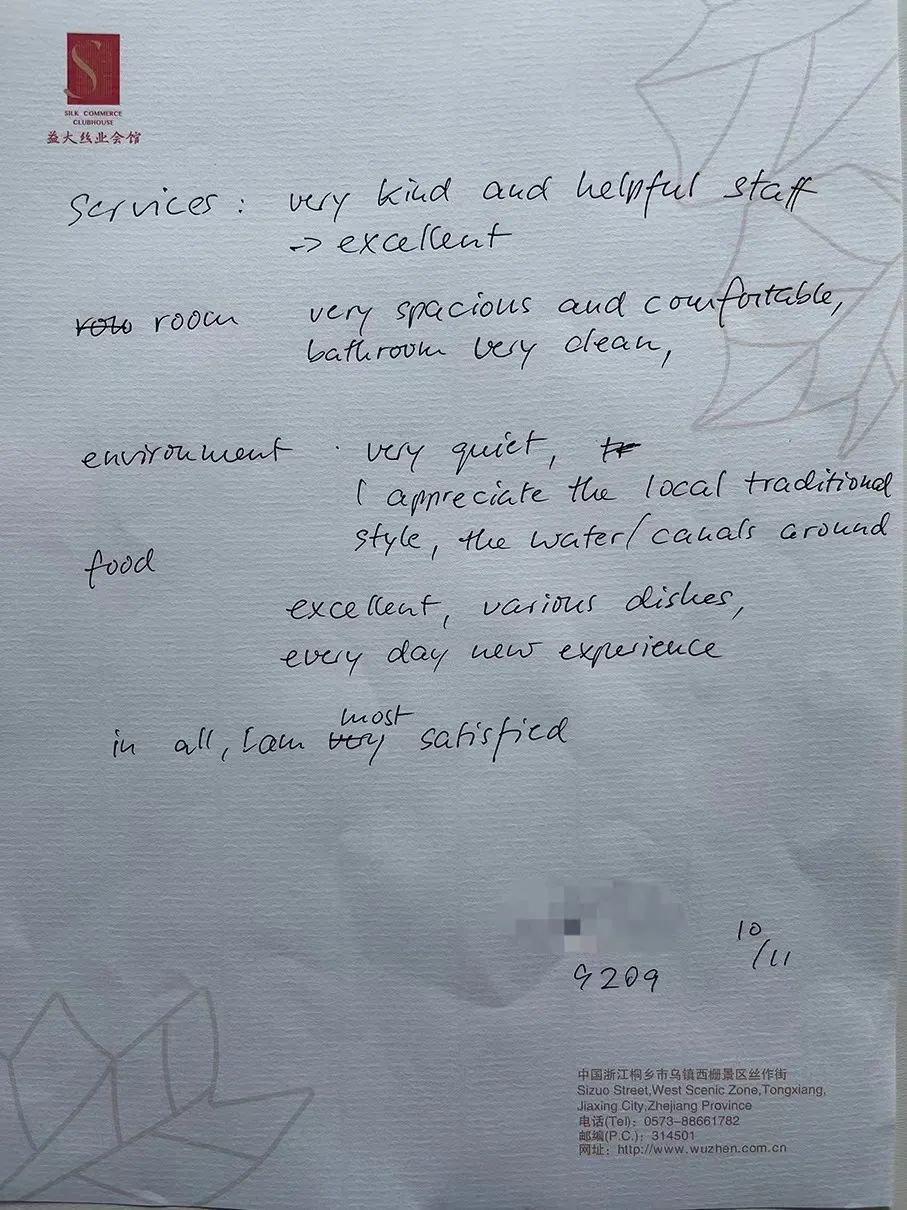 S
SILK COMMERCE
CLUBHOUSE
益大丝业会馆
Services: very kind and helpful staff
-> excellent
room very spacious and comfortable,
bathroom very clean,
environment . very quiet,
I appreciate the local traditional
style, the water/canals around
food
excellent, various dishes,
every day new experience
most
in all, I am very satisfied
10
/11
9209
中国浙江桐乡市乌镇西栅景区丝作街
Sizuo Street,West Scenic Zone,Tongxiang,
Jiaxing City,Zhejiang Province
电话(Tel): 0573-88661782
邮编(P.C.): 314501
网址: http://www.wuzhen.com.cn